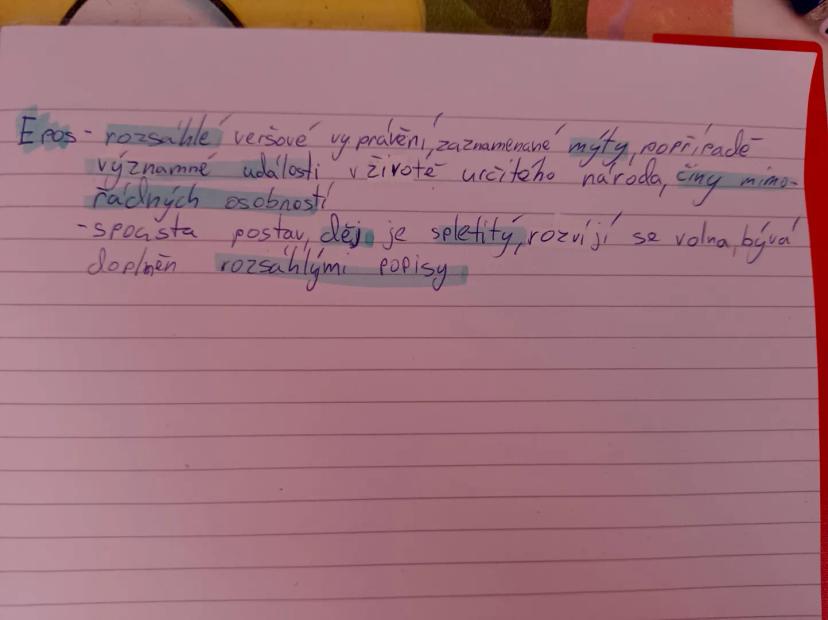 Epos - rozsáhlé veršové vyprávění, zaznamenané mýty, popřípadě
významné události v životě určitého národa, činy mimo-
řádných osobností
- spousta postav, děj je spletitý, rozvíjí se volna, bývá
doplněn rozsáhlými popisy